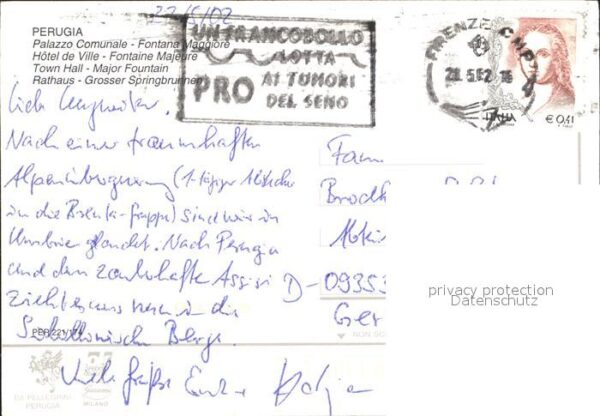 22/5/02
PERUGIA
Palazzo Comunale - Fontana Maggiore
Hôtel de Ville - Fontaine Majeure
Town Hall - Major Fountain
Rathaus - Grosser Springbrunnen
UN FRANCOBOLLO
LOTTA
PRO AI TUMORI
DEL SENO
FIRENZE CMP
21.5.02 16
ITALIA
€ 0,41
Liebe
Nach einer traumhaften
Alpenüberquerung (1-tägiger
in die Brenta-Gruppe) sind wir in
Umbrien gelandet. Nach Perugia
und dem zauberhaften Assisi
zieht es uns nun in die
Sibillinischen Berge.
Viele Grüße Eure Katja
Fam
D-09353
Ger
PER 221/174
DA PELLEGRINI
PERUGIA
MILANO
privacy protection
Datenschutz